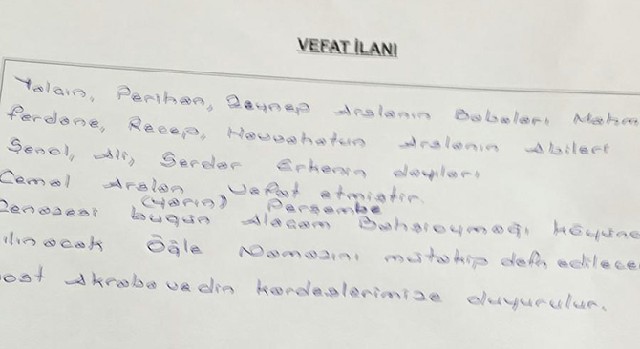 VEFAT İLANI
Yalçın, Perihan, Zeynep Arslanın Babaları Mahm
Perdane, Recep, Havvahatun Arslanın Abileri
Şenol, Ali, Serdar Erkenin dayıları
Cemal Arslan vefat etmiştir.
(yarın) Perşembe
Cenazesi bugün Alaçam Bahşioymağı Köyüne
ılınacak Öğle Namazını mütakip defn edilecek
ost Akraba ve din kardeşlerimize duyurulur.